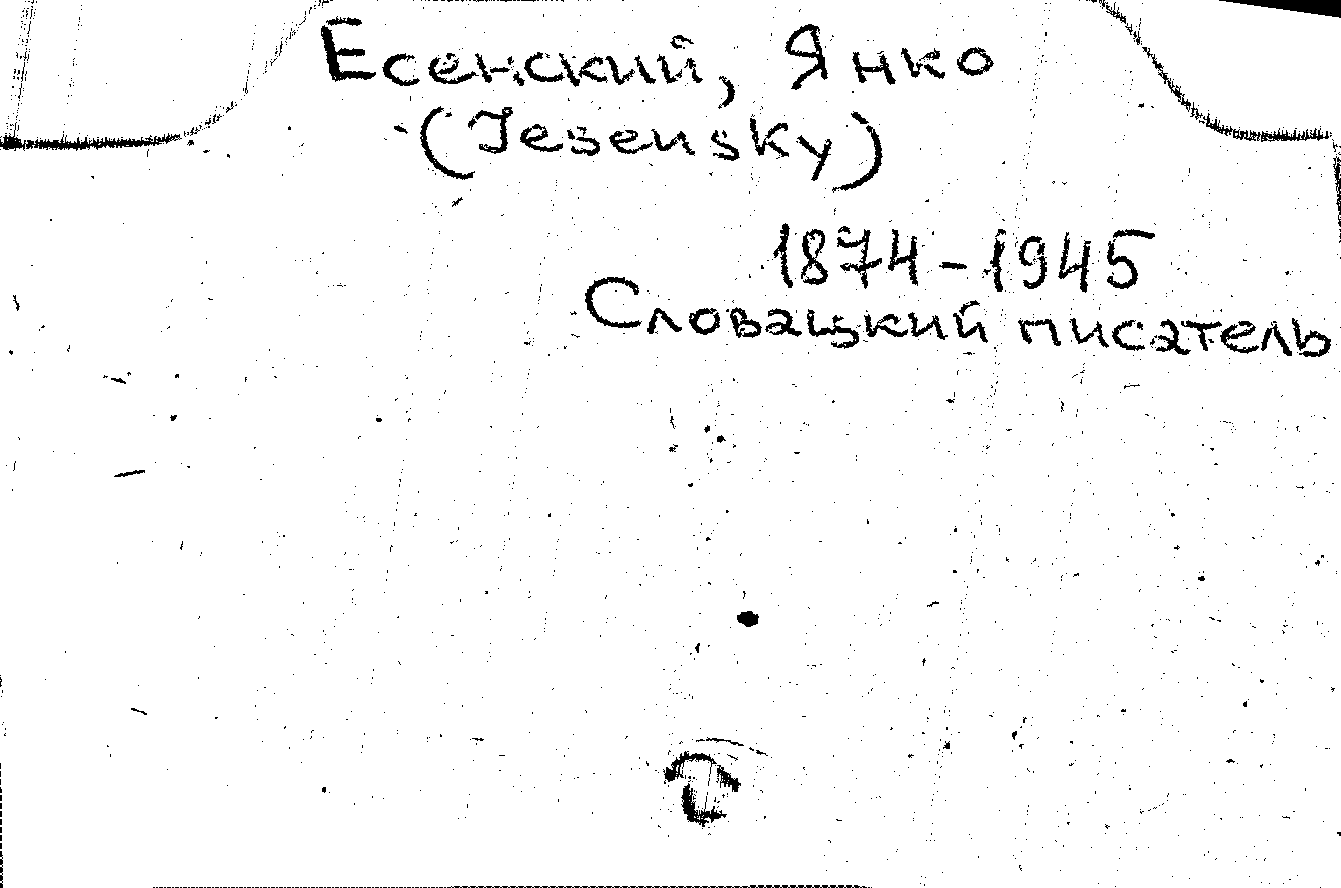 Есенский, Янко
(Jesensky)
1874-1945
Словацкий писатель